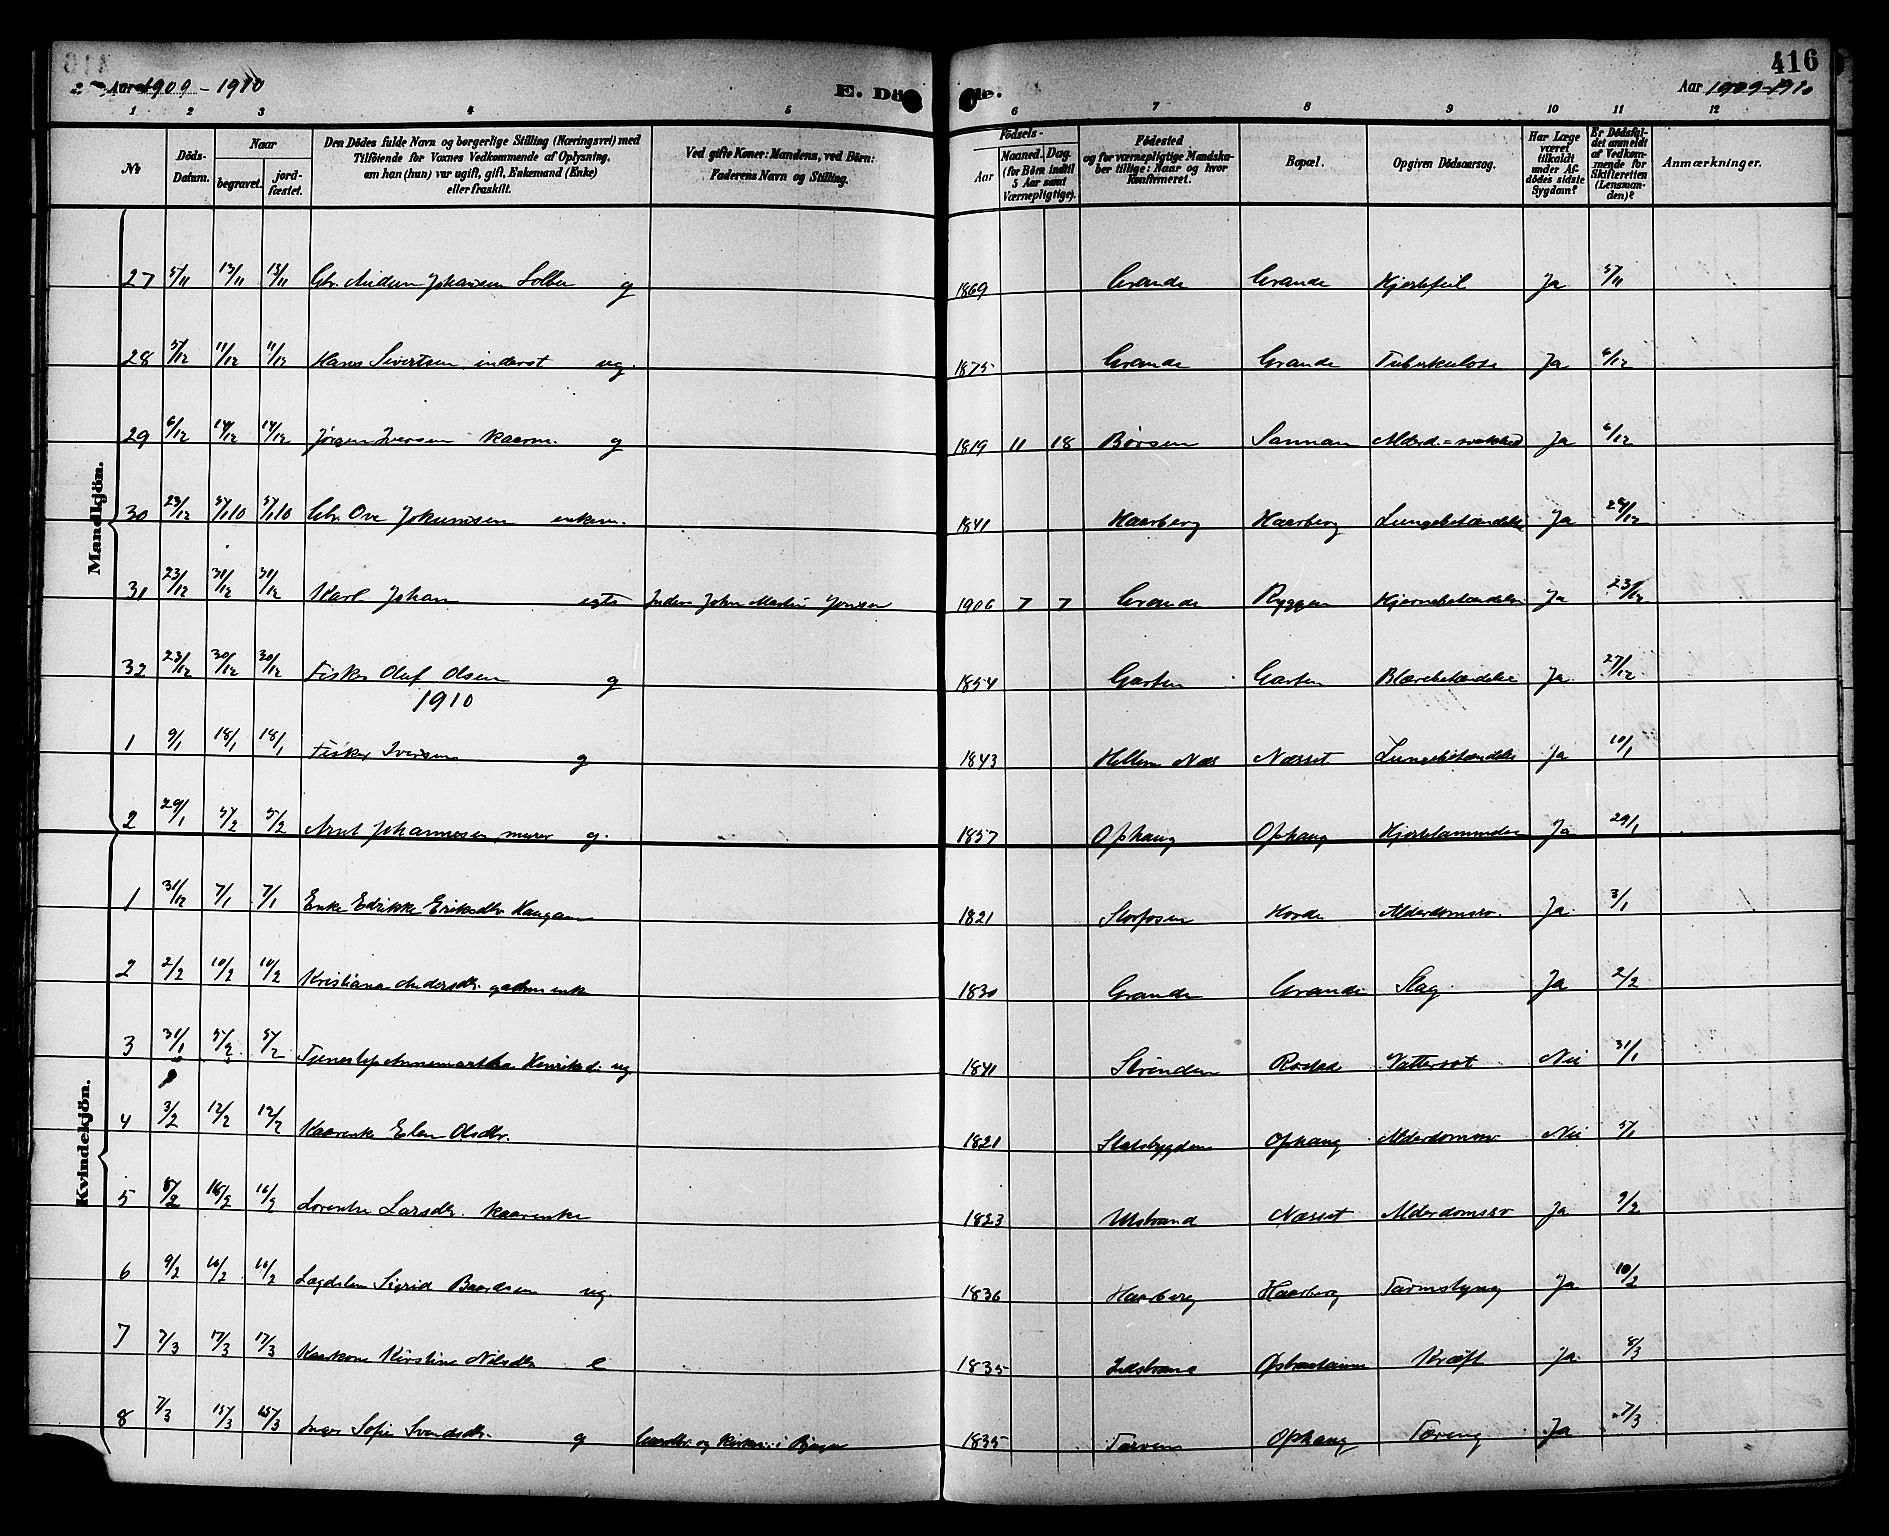 416
Aaret 1909 - 1910 E. Dö de. Aar 1909-1910
1 2 3 4 5 6 7 8 9 10 11 12
No Döds-Datum. Naar begravet. jord-fæstet. Den Dödes fulde Navn og borgerlige Stilling (Næringsvei) med Tilföiende for Voxnes Vedkommende af Oplysning, om han (hun) var ugift, gift, Enkemand (Enke) eller fraskilt. Ved gifte Koner: Mandens, ved Börn: Faderens Navn og Stilling. Födsels- Aar Maaned. Dag. (for Börn indtil 5 Aar samt Værnepligtige). Födested og for værnepligtige Mandskaber tillige: Naar og hvor konfirmeret. Bopæl. Opgiven Dödsaarsag. Har Læge været tilkaldt under Afdödes sidste Sygdom? Er Dödsfaldet anmeldt af Vedkommende for Skifteretten (Lensmanden)? Anmærkninger.
Mandkjön.
27 5/11 13/11 13/11 Gbr. Johansen g 1869 Grande Grande Kjertefeil Ja 5/11
28 5/12 11/12 11/12 Hans Sivertsen inderst ug. 1875 Grande Grande Tuberkulose Ja 6/12
29 6/12 14/12 14/12 Jørgen Iversen Kaarm. g 1819 11 18 Børsen Sannan Alderd.=svakhed Ja 6/12
30 23/12 5/1 10 5/1 10 Gbr. Ove Jokumsen enkem. 1841 Haarberg Haarberg Lungebetændelse Ja 28/12
31 23/12 30/12 30/12 Karl Johan egte Inders John Martin Jonsen 1906 7 7 Grande Ryggen Hjernebetændelse Ja 23/12
32 23/12 30/12 30/12 Fisker Oluf Olsen g 1854 Garten Garten Blærebetændelse Ja 27/12
1910
1 9/1 18/1 18/1 Fisker Iversen g 1843 Næsset Lungebetændelse Ja 10/1
2 29/1 5/2 5/2 Arnt Johannesen, murer g. 1857 Ophaug Ophaug Ja 29/1
Kvindekjön.
1 31/12 7/1 7/1 Enke Edrikke Eriksdtr Haugan 1821 Storfosen Hovde Alderdomssv. Ja 3/1
2 2/2 10/2 10/2 Kristiana Andersdtr. enke 1830 Grande Grande Slag Ja 2/2
3 31/1 5/2 5/2 Annemartha Henriksd. ug 1841 Strinden Vattersot Nei 31/1
4 3/2 12/2 12/2 Kaarenke Elen Olsdtr. 1821 Stadsbygden Ophaug Alderdomssv Nei 5/1
5 8/2 16/2 16/2 Lorentse Larsdtr. Kaarenke 1823 Næsset Alderdomssv Ja 9/2
6 9/2 16/2 16/2 Lægdslem Sigrid Baardsen ug 1836 Haarberg Haarberg Tarmslyng Ja 10/2
7 7/3 17/3 17/3 Kaarkone Kirstine Nilsdtr e 1835 Kræft Ja. 8/3
8 7/3 15/3 15/3 Inger Sofie Svendsdtr. g Gaardbr. og i 1835 Tarven Ophaug Tæring Ja 7/3